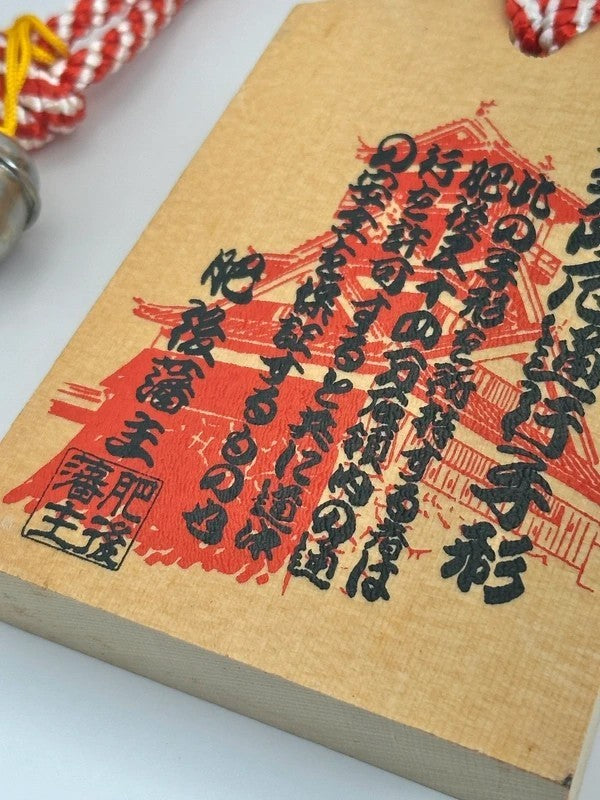 通行手形
此の手形を所持する者は
肥後五十四万石領内の通
行を許可すると共に道中
の安全を保証するもの也
肥後藩主
肥後
藩主